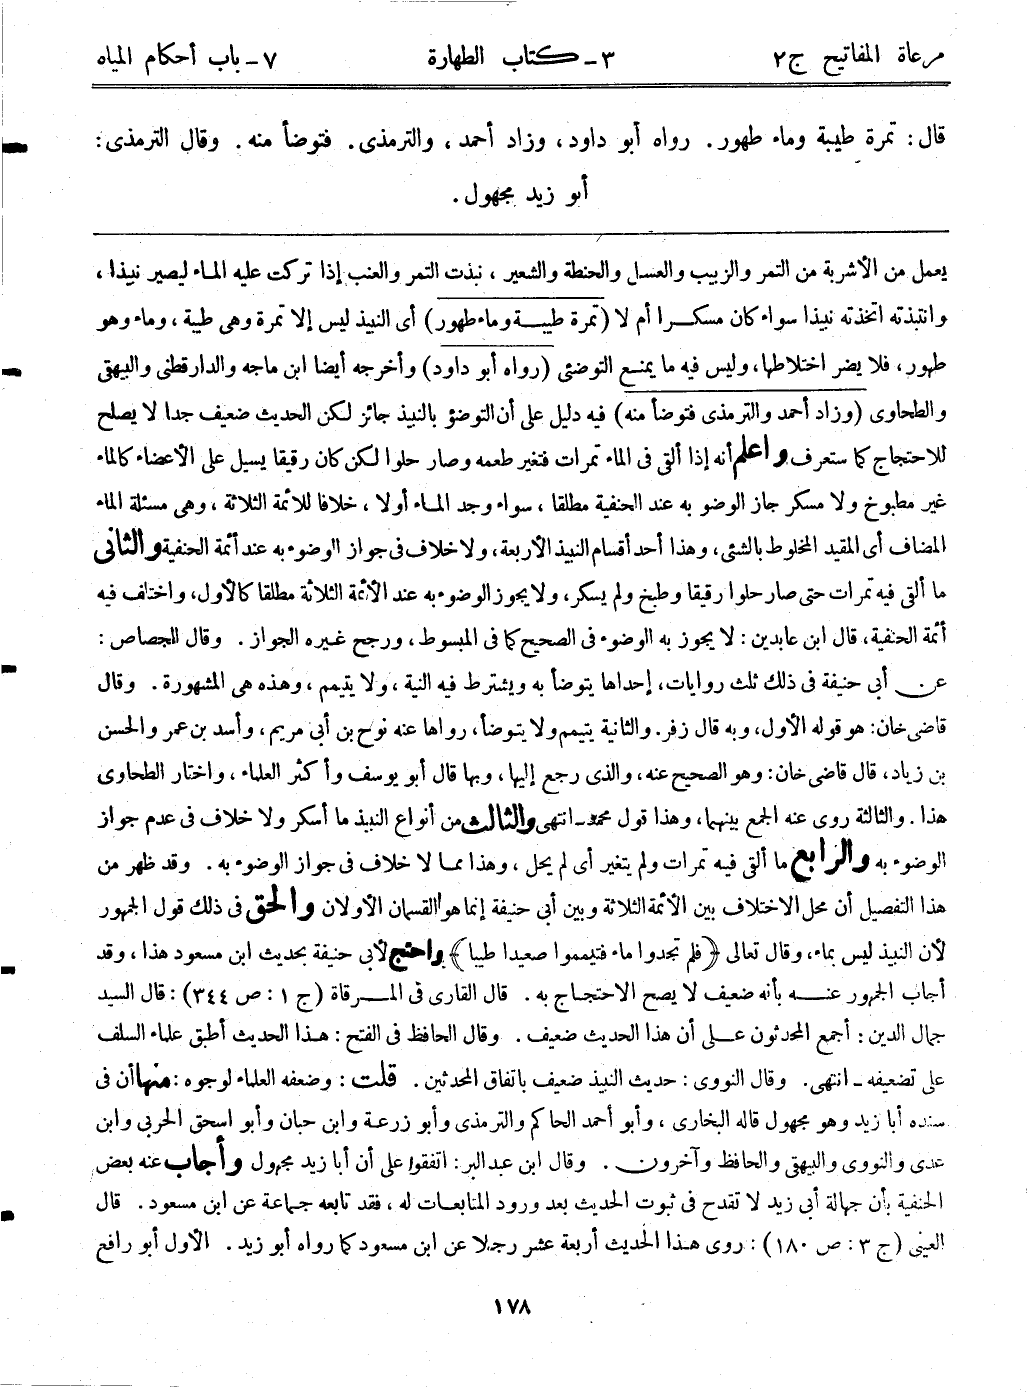 مرعاة المفاتيح ج٢ ٣ - كتاب الطهارة ٧ - باب أحكام المياه
قال: تمرة طيبة وماء طهور. رواه أبو داود، وزاد أحمد، والترمذى. فتوضأ منه. وقال الترمذى:
أبو زيد مجهول.
يعمل من الأشربة من التمر والزبيب والعسل والحنطة والشعير، نبذت التمر والعنب إذا تركت عليه الماء ليصير نبيذا،
وانتبذته اتخذته نبيذا سواء كان مسكرا أم لا (تمرة طيبة وماء طهور) أى النبيذ ليس إلا تمرة وهى طيبة، وماء وهو
طهور، فلا يضر اختلاطها، وليس فيه ما يمنع التوضئى (رواه أبو داود) وأخرجه أيضا ابن ماجه والدارقطنى والبيهقى
والطحاوى (وزاد أحمد والترمذى فتوضأ منه) فيه دليل على أن التوضؤ بالنبيذ جائز لكن الحديث ضعيف جدا لا يصلح
للاحتجاج كما ستعرف واعلم أنه إذا ألقى فى الماء تمرات فتغير طعمه وصار حلوا لكن كان رقيقا يسيل على الأعضاء كالماء
غير مطبوخ ولا مسكر جاز الوضو به عند الحنفية مطلقا، سواء وجد الماء أولا، خلافا للأئمة الثلاثة، وهى مسئلة الماء
المضاف أى المقيد المخلوط بالشئى، وهذا أحد أقسام النبيذ الأربعة، ولا خلاف فى جواز الوضوء به عند أئمة الحنفية والثانى
ما ألقى فيه تمرات حتى صار حلوا رقيقا وطبخ ولم يسكر، ولا يجوز الوضوء به عند الأئمة الثلاثة مطلقا كالأول، واختلف فيه
أئمة الحنفية، قال ابن عابدين: لا يجوز به الوضوء فى الصحيح كما فى المبسوط، ورجح غيره الجواز. وقال الجصاص:
عن أبى حنيفة فى ذلك ثلث روايات، إحداها يتوضأ به ويشترط فيه النية، ولا يتيمم، وهذه هى المشهورة. وقال
قاضى خان: هو قوله الأول، وبه قال زفر. والثانية يتيمم ولا يتوضأ، رواها عنه نوح بن أبى مريم، وأسد بن عمر والحسن
بن زياد، قال قاضى خان: وهو الصحيح عنه، والذى رجع إليها، وبها قال أبو يوسف وأكثر العلماء، واختار الطحاوى
هذا. والثالثة روى عنه الجمع بينهما، وهذا قول محمد - انتهى والثالث من أنواع النبيذ ما أسكر ولا خلاف فى عدم جواز
الوضوء به والرابع ما ألقى فيه تمرات ولم يتغير أى لم يحل، وهذا مما لا خلاف فى جواز الوضوء به. وقد ظهر من
هذا التفصيل أن محل الاختلاف بين الأئمة الثلاثة وبين أبى حنيفة إنما هو القسمان الأولان والحق فى ذلك قول الجمهور
لأن النبيذ ليس بماء، وقال تعالى ﴿فلم تجدوا ماء فتيمموا صعيدا طيبا﴾ واحتج لأبى حنيفة بحديث ابن مسعود هذا، وقد
أجاب الجمهور عنه بأنه ضعيف لا يصح الاحتجاج به. قال القارى فى المرقاة (ج ١: ص ٣٤٤): قال السيد
جمال الدين: أجمع المحدثون على أن هذا الحديث ضعيف. وقال الحافظ فى الفتح: هذا الحديث أطبق علماء السلف
على تضعيفه - انتهى. وقال النووى: حديث النبيذ ضعيف باتفاق المحدثين. قلت: وضعفه العلماء لوجوه: منها أن فى
سنده أبا زيد وهو مجهول قاله البخارى، وأبو أحمد الحاكم والترمذى وأبو زرعة وابن حبان وأبو اسحق الحربى وابن
عدى والنووى والبيهقى والحافظ وآخرون. وقال ابن عبد البر: اتفقوا على أن أبا زيد مجهول وأجاب عنه بعض
الحنفية بأن جهالة أبى زيد لا تقدح فى ثبوت الحديث بعد ورود المتابعات له، فقد تابعه جماعة عن ابن مسعود. قال
العينى (ج ٣: ص ١٨٠): روى هذا الحديث أربعة عشر رجلا عن ابن مسعود كما رواه أبو زيد. الأول أبو رافع
١٧٨